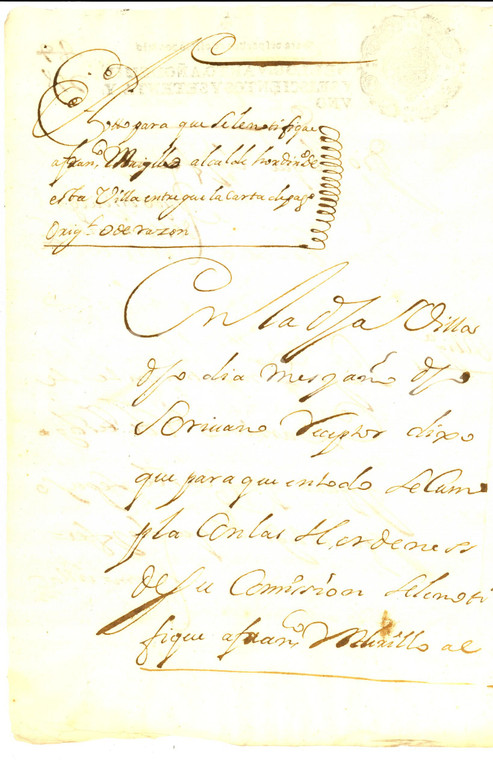 Autto para que se le notifique
a Fran.co Murillo alcalde hordin.o de
esta Villa entregue la Carta de pago
Orig.l o de razon
En la dha Villa
dho dia mes y año dho
Scrivano Receptor dixo
que para que en todo se Cum
pla Con las Hordeness
de su Comission se le noti
fique a Fran.co Murillo al